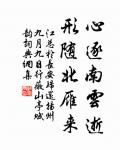 心逐南雲逝
形隨北雁來
江總於長安歸還揚州
九月九日行薇山亭賦
韵詞典網集